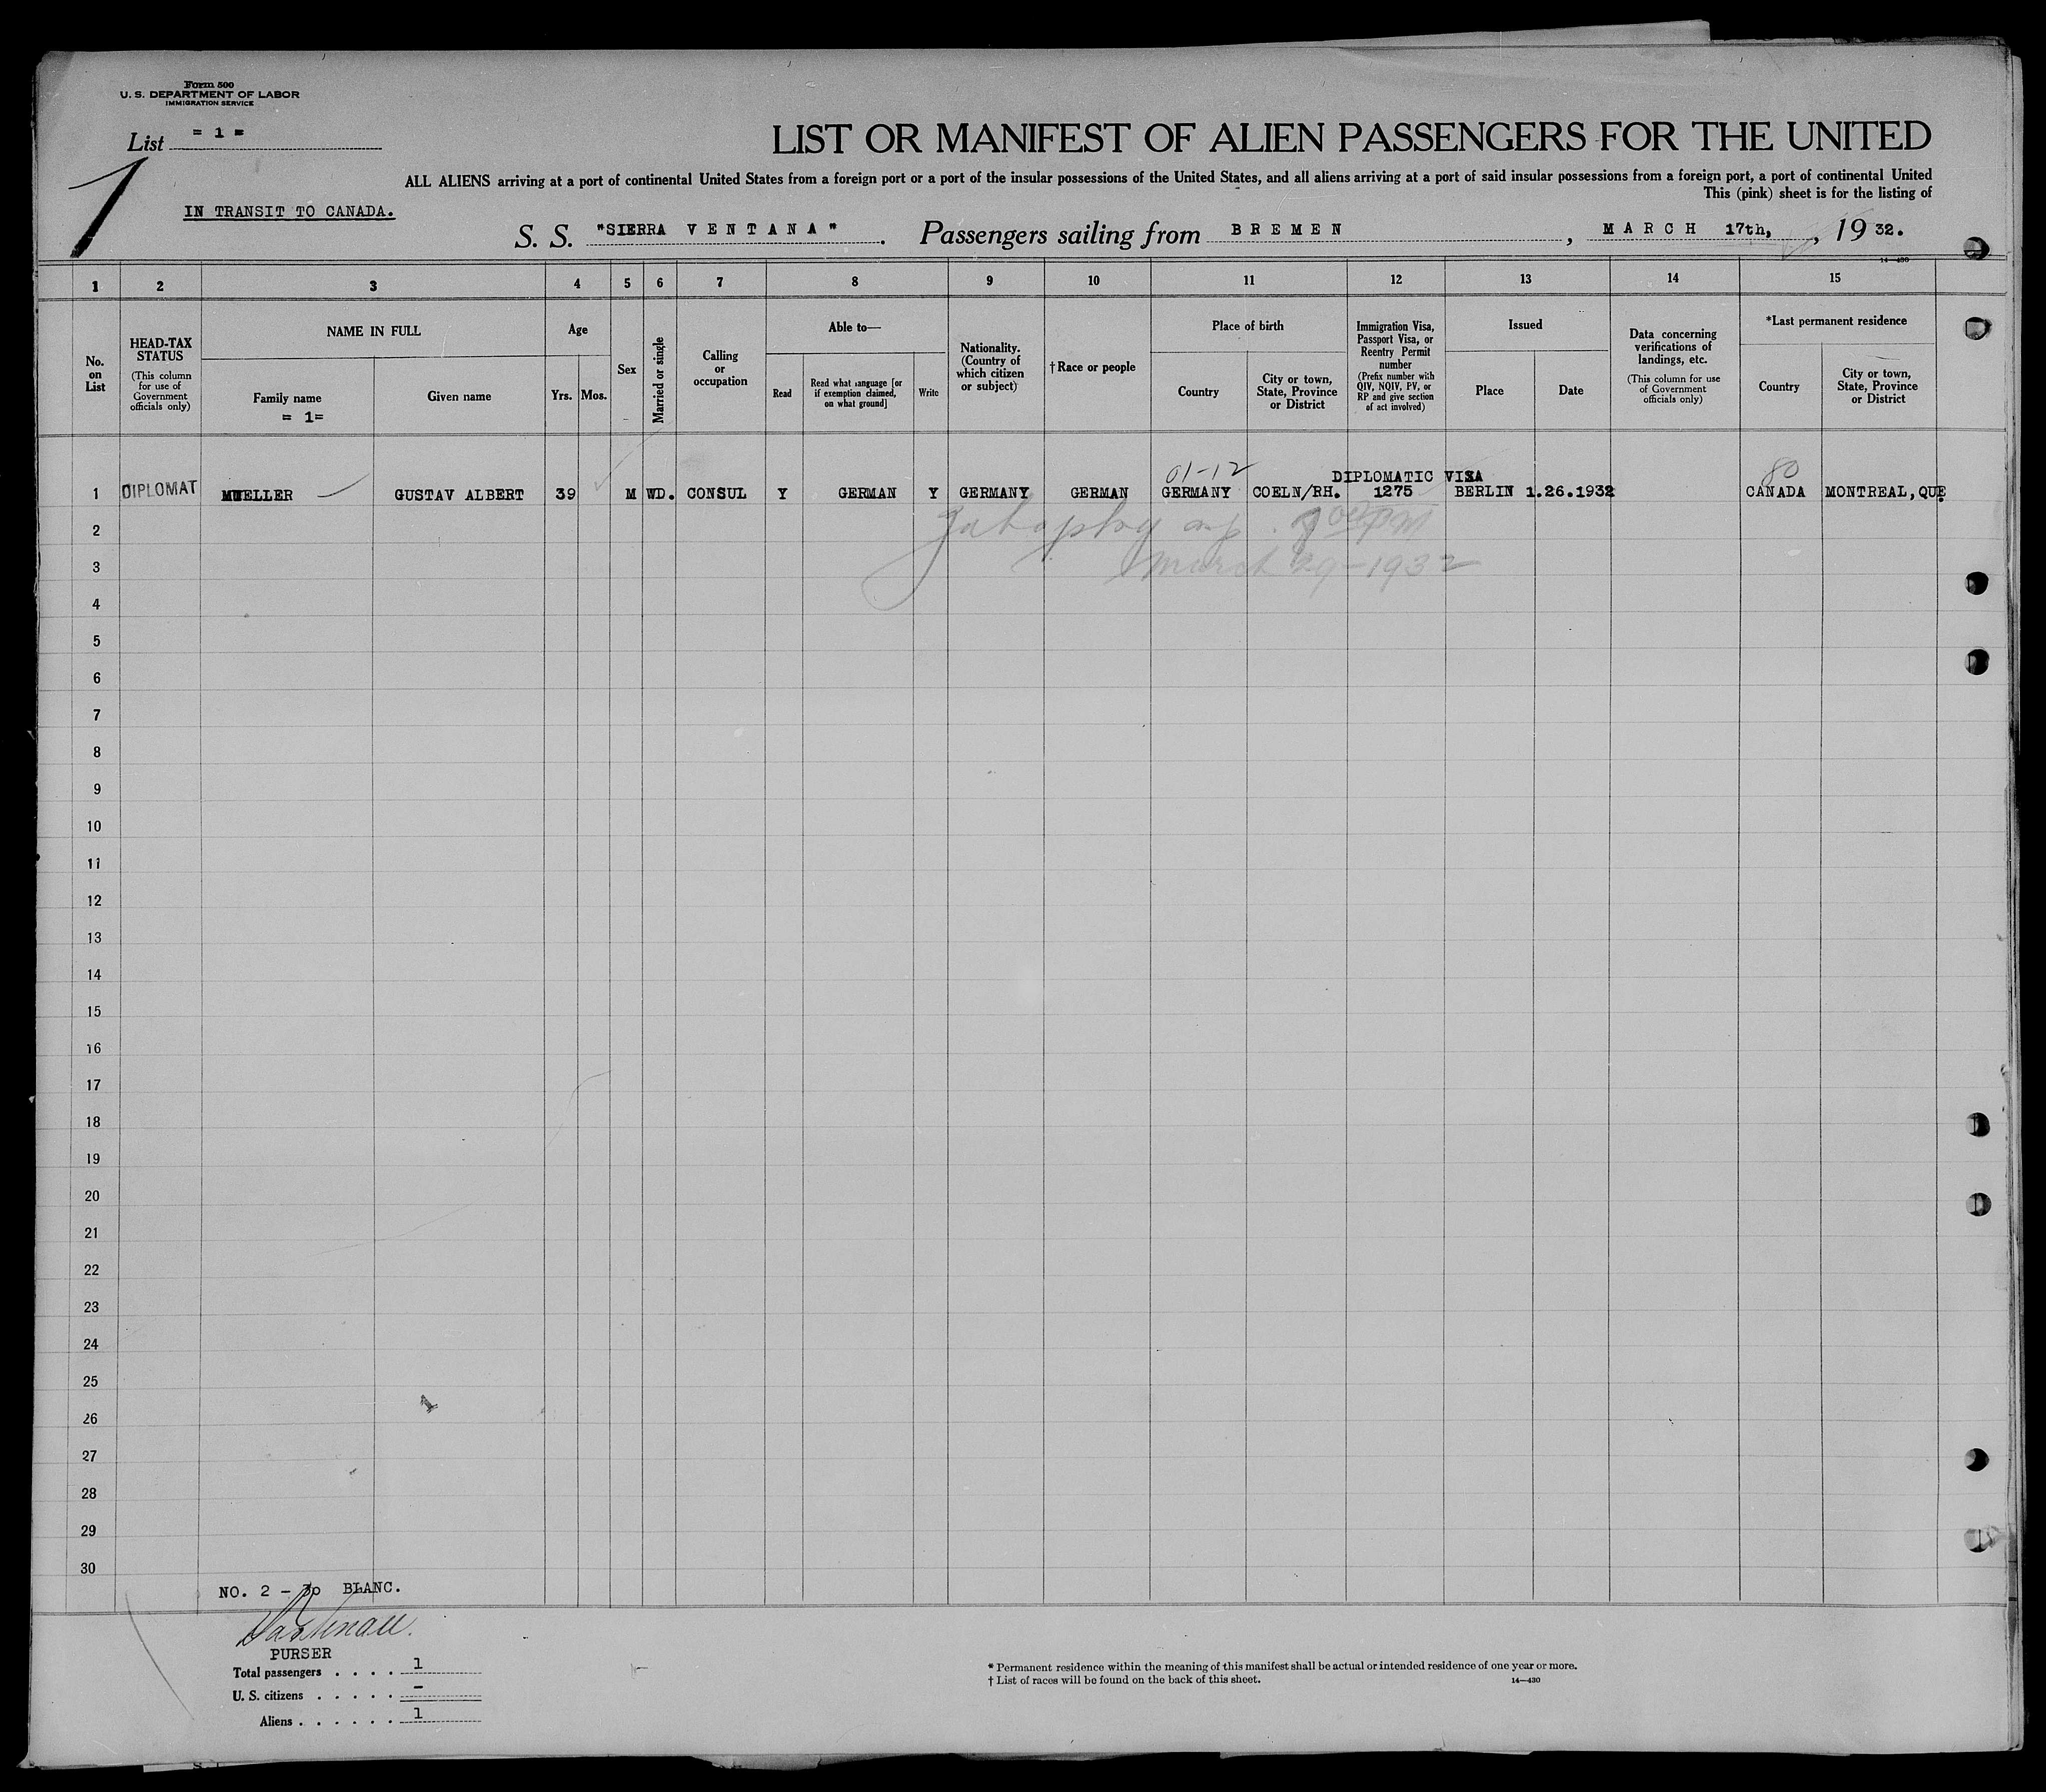 Form 500
U. S. DEPARTMENT OF LABOR
IMMIGRATION SERVICE
List = 1 =
1
LIST OR MANIFEST OF ALIEN PASSENGERS FOR THE UNITED
ALL ALIENS arriving at a port of continental United States from a foreign port or a port of the insular possessions of the United States, and all aliens arriving at a port of said insular possessions from a foreign port, a port of continental United
This (pink) sheet is for the listing of
IN TRANSIT TO CANADA.
S. S. "SIERRA VENTANA". Passengers sailing from BREMEN, MARCH 17th, , 19 32.
14—430
1 2 3 4 5 6 7 8 9 10 11 12 13 14 15
No. on List
HEAD-TAX STATUS
(This column for use of Government officials only)
NAME IN FULL
Family name
= 1=
Given name
Age
Yrs. Mos.
Sex
Married or single
Calling or occupation
Able to—
Read
Read what language [or if exemption claimed, on what ground]
Write
Nationality. (Country of which citizen or subject)
†Race or people
Place of birth
Country
City or town, State, Province or District
Immigration Visa, Passport Visa, or Reentry Permit number
(Prefix number with QIV, NQIV, PV, or RP and give section of act involved)
Issued
Place
Date
Data concerning verifications of landings, etc.
(This column for use of Government officials only)
*Last permanent residence
Country
City or town, State, Province or District
01-12 DIPLOMATIC VISA 80
1 DIPLOMAT MUELLER GUSTAV ALBERT 39 M WD. CONSUL Y GERMAN Y GERMANY GERMAN GERMANY COELN/RH. 1275 BERLIN 1.26.1932 CANADA MONTREAL,QUE
2
3 March 29-1932
4
5
6
7
8
9
10
11
12
13
14
15
16
17
18
19
20
21
22
23
24
25
26
27
28
29
30
NO. 2 - 30 BLANC.
PURSER
Total passengers . . . . 1
U. S. citizens . . . . . -
Aliens . . . . . . 1
* Permanent residence within the meaning of this manifest shall be actual or intended residence of one year or more.
† List of races will be found on the back of this sheet.
14—430